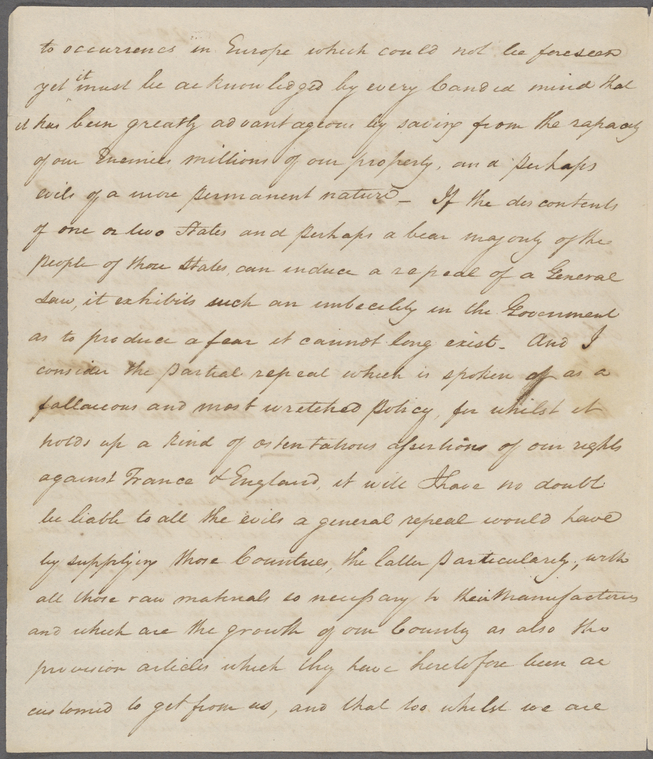 to occurrences in Europe which could not be foreseen
yet it must be acknowledged by every Candid mind that
it has been greatly advantageous by saving from the rapacity
of our Enemies millions of our property, and perhaps
evils of a more permanent nature_ If the discontents
of one or two States and perhaps a bear majority of the
people of those States, can induce a repeal of a General
Law, it exhibits such an imbecility in the Government
as to produce a fear it cannot long exist_ And I
consider the partial repeal which is spoken of as a
fallacious and most wretched policy, for whilst it
holds up a kind of ostentatious assertions of our rights
against France & England, it will I have no doubt
be liable to all the evils a general repeal would have
by supplying those Countries, the latter particularly, with
all those raw materials so necessary to their Manufactories
and which are the growth of our Country as also the
provision articles which they have heretofore been ac
customed to get from us, and that too whilst we are